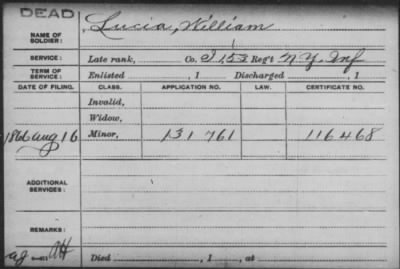 DEAD
NAME OF SOLDIER: Lucia, William
SERVICE: Late rank, Co. I 153 Reg't N.Y. Inf
TERM OF SERVICE: Enlisted , 1 Discharged , 1
DATE OF FILING. CLASS. APPLICATION NO. LAW. CERTIFICATE NO.
Invalid,
Widow,
1866 Aug 16 Minor, 131 761 116468
ADDITIONAL SERVICES:
REMARKS:
Died , 1 , at